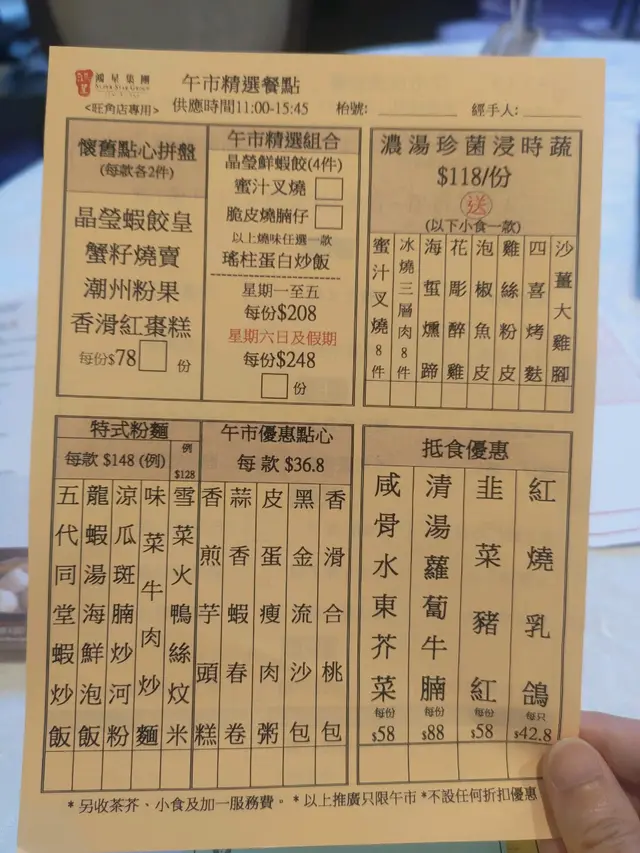 鴻星集團
SUPER STAR GROUP
<旺角店專用>
午市精選餐點
供應時間11:00-15:45
枱號:
經手人:
懷舊點心拼盤
(每款各2件)
晶瑩蝦餃皇
蟹籽燒賣
潮州粉果
香滑紅棗糕
每份$78 份
午市精選組合
晶瑩鮮蝦餃(4件)
蜜汁叉燒
脆皮燒腩仔
以上燒味任選一款
瑤柱蛋白炒飯
星期一至五
每份$208
星期六日及假期
每份$248
份
濃湯珍菌浸時蔬
$118/份
送
(以下小食一款)
蜜汁叉燒8件
冰燒三層肉8件
海蜇燻蹄
花彫醉雞
泡椒魚皮
雞絲粉皮
四喜烤麩
沙薑大雞腳
特式粉麵
每款 $148 (例)
例
$128
五代同堂蝦炒飯
龍蝦湯海鮮泡飯
涼瓜斑腩炒河粉
味菜牛肉炒麵
雪菜火鴨絲炆米
午市優惠點心
每款 $36.8
香煎芋頭糕
蒜香蝦春卷
皮蛋瘦肉粥
黑金流沙包
香滑合桃包
抵食優惠
咸骨水東芥菜
每份
$58
清湯蘿蔔牛腩
每份
$88
韭菜豬紅
每份
$58
紅燒乳鴿
每只
$42.8
*另收茶芥、小食及加一服務費。 *以上推廣只限午市 *不設任何折扣優惠